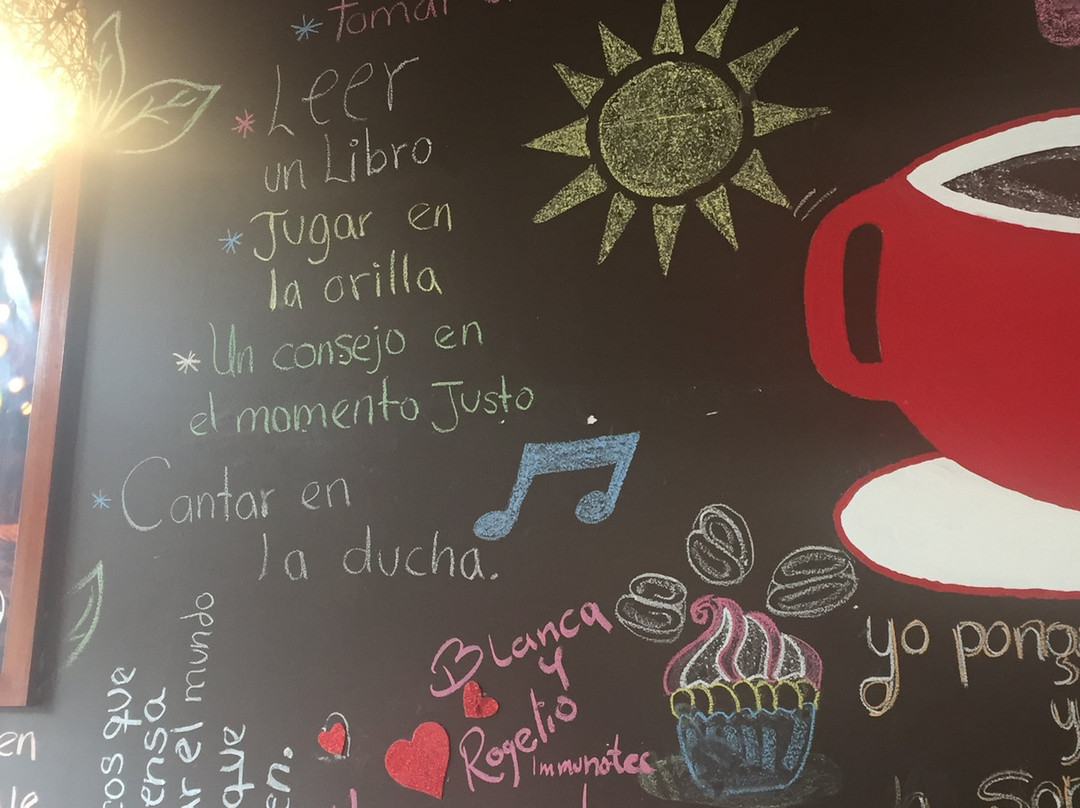 * Tomar
* Leer
un Libro
* Jugar en
la orilla
* Un consejo en
el momento Justo
* Cantar en
la ducha.
Blanca
y
Rogelio
Immunotec
yo pong
cos que
ensa
ar el mundo
que
en.
en